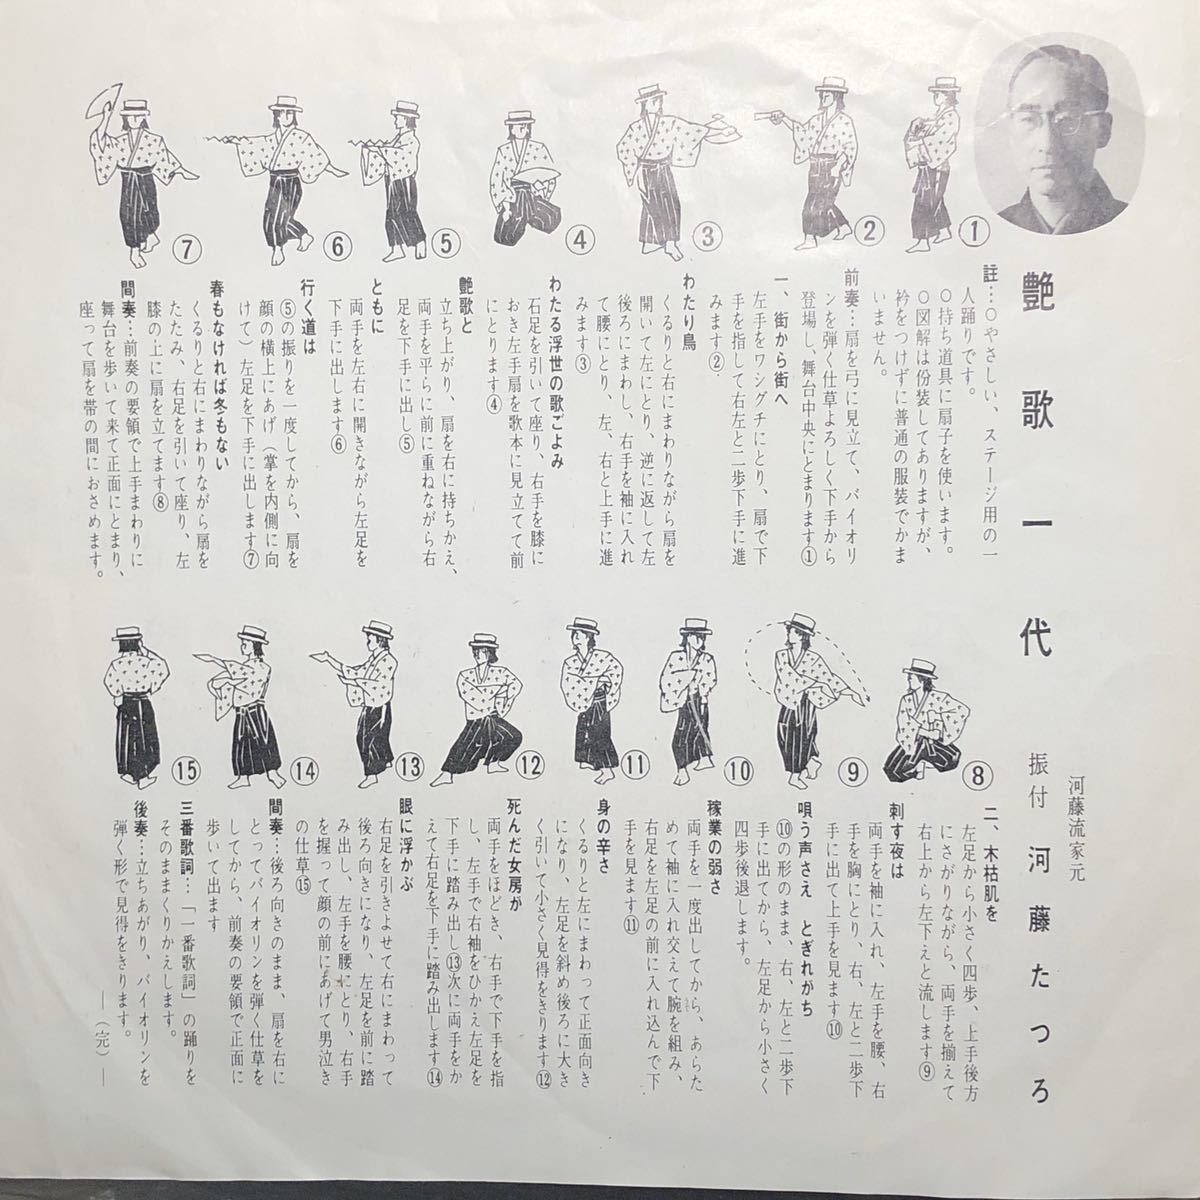 艶歌一代
河藤流家元
振付 河藤たつろ
①
②
③
④
⑤
⑥
⑦
註…○やさしい、ステージ用の一
人踊りです。
○持ち道具に扇子を使います。
○図解は份装してありますが、
衿をつけずに普通の服装でかま
いません。
前奏…扇を弓に見立て、バイオリ
ンを弾く仕草よろしく下手から
登場し、舞台中央にとまります①
一、街から街へ
左手をワシグチにとり、扇で下
手を指して右左と二歩下手に進
みます②
わたり鳥
くるりと右にまわりながら扇を
開いて左にとり、逆に返して左
後ろにまわし、右手を袖に入れ
て腰にとり、左、右と上手に進
みます③
わたる浮世の歌ごよみ
右足を引いて座り、右手を膝に
おき左手扇を歌本に見立てて前
にとります④
艶歌と
立ち上がり、扇を右に持ちかえ、
両手を平らに前に重ねながら右
足を下手に出し⑤
ともに
両手を左右に開きながら左足を
下手に出します⑥
行く道は
⑤の振りを一度してから、扇を
顔の横上にあげ（掌を内側に向
けて）左足を下手に出します⑦
春もなければ冬もない
くるりと右にまわりながら扇を
たたみ、右足を引いて座り、左
膝の上に扇を立てます⑧
間奏…前奏の要領で上手まわりに
舞台を歩いて来て正面にとまり、
座って扇を帯の間におさめます。
⑧
⑨
⑩
⑪
⑫
⑬
⑭
⑮
二、木枯肌を
左足から小さく四歩、上手後方
にさがりながら、両手を揃えて
右上から左下えと流します⑨
刺す夜は
両手を袖に入れ、左手を腰、右
手を胸にとり、右、左と二歩下
手に出て上手を見ます⑩
唄う声さえ とぎれがち
⑩の形のまま、右、左と二歩下
手に出てから、左足から小さく
四歩後退します。
稼業の弱さ
両手を一度出してから、あらた
めて袖に入れ交えて腕を組み、
右足を左足の前に入れ込んで下
手を見ます⑪
身の辛さ
くるりと左にまわって正面向き
になり、左足を斜め後ろに大き
く引いて小さく見得をきります⑫
死んだ女房が
両手をほどき、右手で下手を指
し、左手で右袖をひかえ左足を
下手に踏み出し⑬次に両手をか
えて右足を下手に踏み出します⑭
眼に浮かぶ
右足を引きよせて右にまわって
後ろ向きになり、左足を前に踏
み出し、左手を腰にとり、右手
を握って顔の前にあげて男泣き
の仕草⑮
間奏…後ろ向きのまま、扇を右に
とってバイオリンを弾く仕草を
してから、前奏の要領で正面に
歩いて出ます
三番歌詞…「一番歌詞」の踊りを
そのままくりかえします。
後奏…立ちあがり、バイオリンを
弾く形で見得をきります。
―（完）―